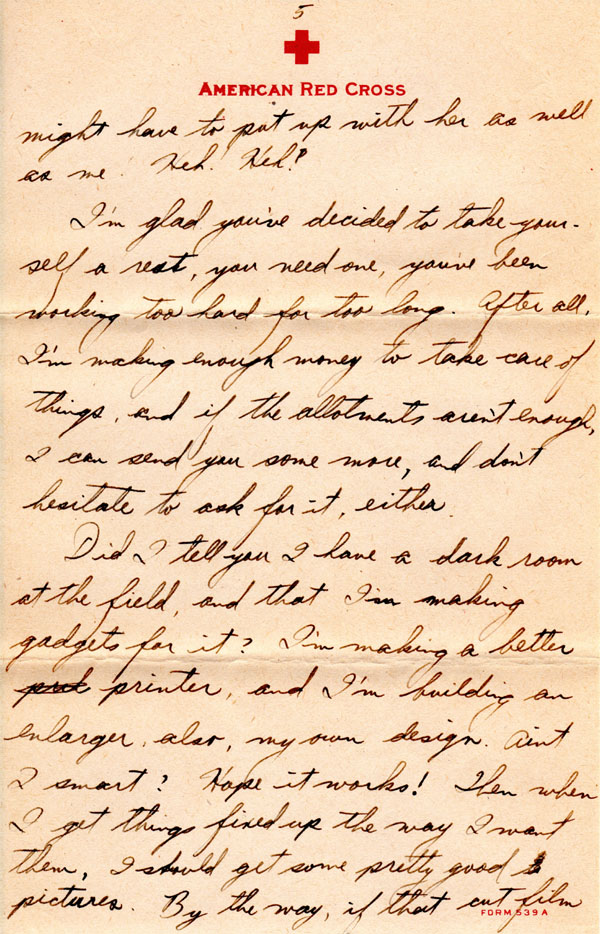 5
AMERICAN RED CROSS
might have to put up with her as well
as me. Heh. Heh!
I'm glad you've decided to take your-
self a rest, you need one, you've been
working too hard for too long. After all,
I'm making enough money to take care of
things, and if the allotments aren't enough,
I can send you some more, and don't
hesitate to ask for it, either.
Did I tell you I have a dark room
at the field, and that I'm making
gadgets for it? I'm making a better
printer, and I'm building an
enlarger, also, my own design. Aint
I smart? Hope it works! Then when
I get things fixed up the way I want
them, I should get some pretty good
pictures. By the way, if that cut film
FORM 539 A